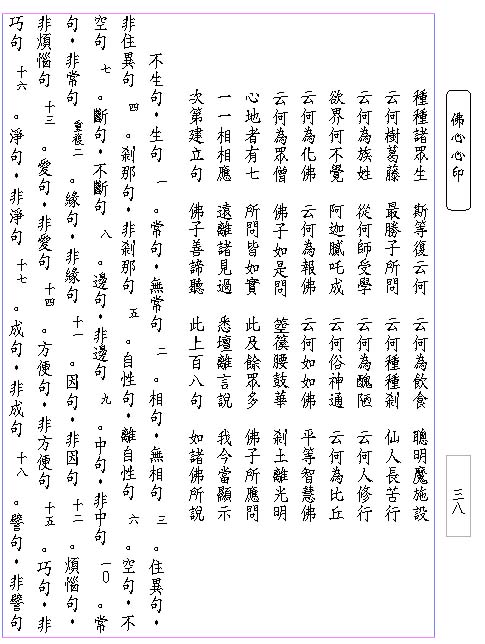 佛心心印
三八
種種諸眾生 斯等復云何 云何為飲食 聰明魔施設
云何樹葛藤 最勝子所問 云何種種剎 仙人長苦行
云何為族姓 從何師受學 云何為醜陋 云何人修行
欲界何不覺 阿迦膩吒成 云何俗神通 云何為比丘
云何為化佛 云何為報佛 云何如如佛 平等智慧佛
云何為眾僧 佛子如是問 箜篌腰鼓華 剎土離光明
心地者有七 所問皆如實 此及餘眾多 佛子所應問
一一相相應 遠離諸見過 悉壇離言說 我今當顯示
次第建立句 佛子善諦聽 此上百八句 如諸佛所說
不生句・生句 一 。常句・無常句 二 。相句・無相句 三 。住異句・
非住異句 四 。剎那句・非剎那句 五 。自性句・離自性句 六 。空句・不
空句 七 。斷句・不斷句 八 。邊句・非邊句 九 。中句・非中句 一〇 。常
句・非常句 重複二 。緣句・非緣句 十一 。因句・非因句 十二 。煩惱句・
非煩惱句 十三 。愛句・非愛句 十四 。方便句・非方便句 十五 。巧句・非
巧句 十六 。淨句・非淨句 十七 。成句・非成句 十八 。譬句・非譬句